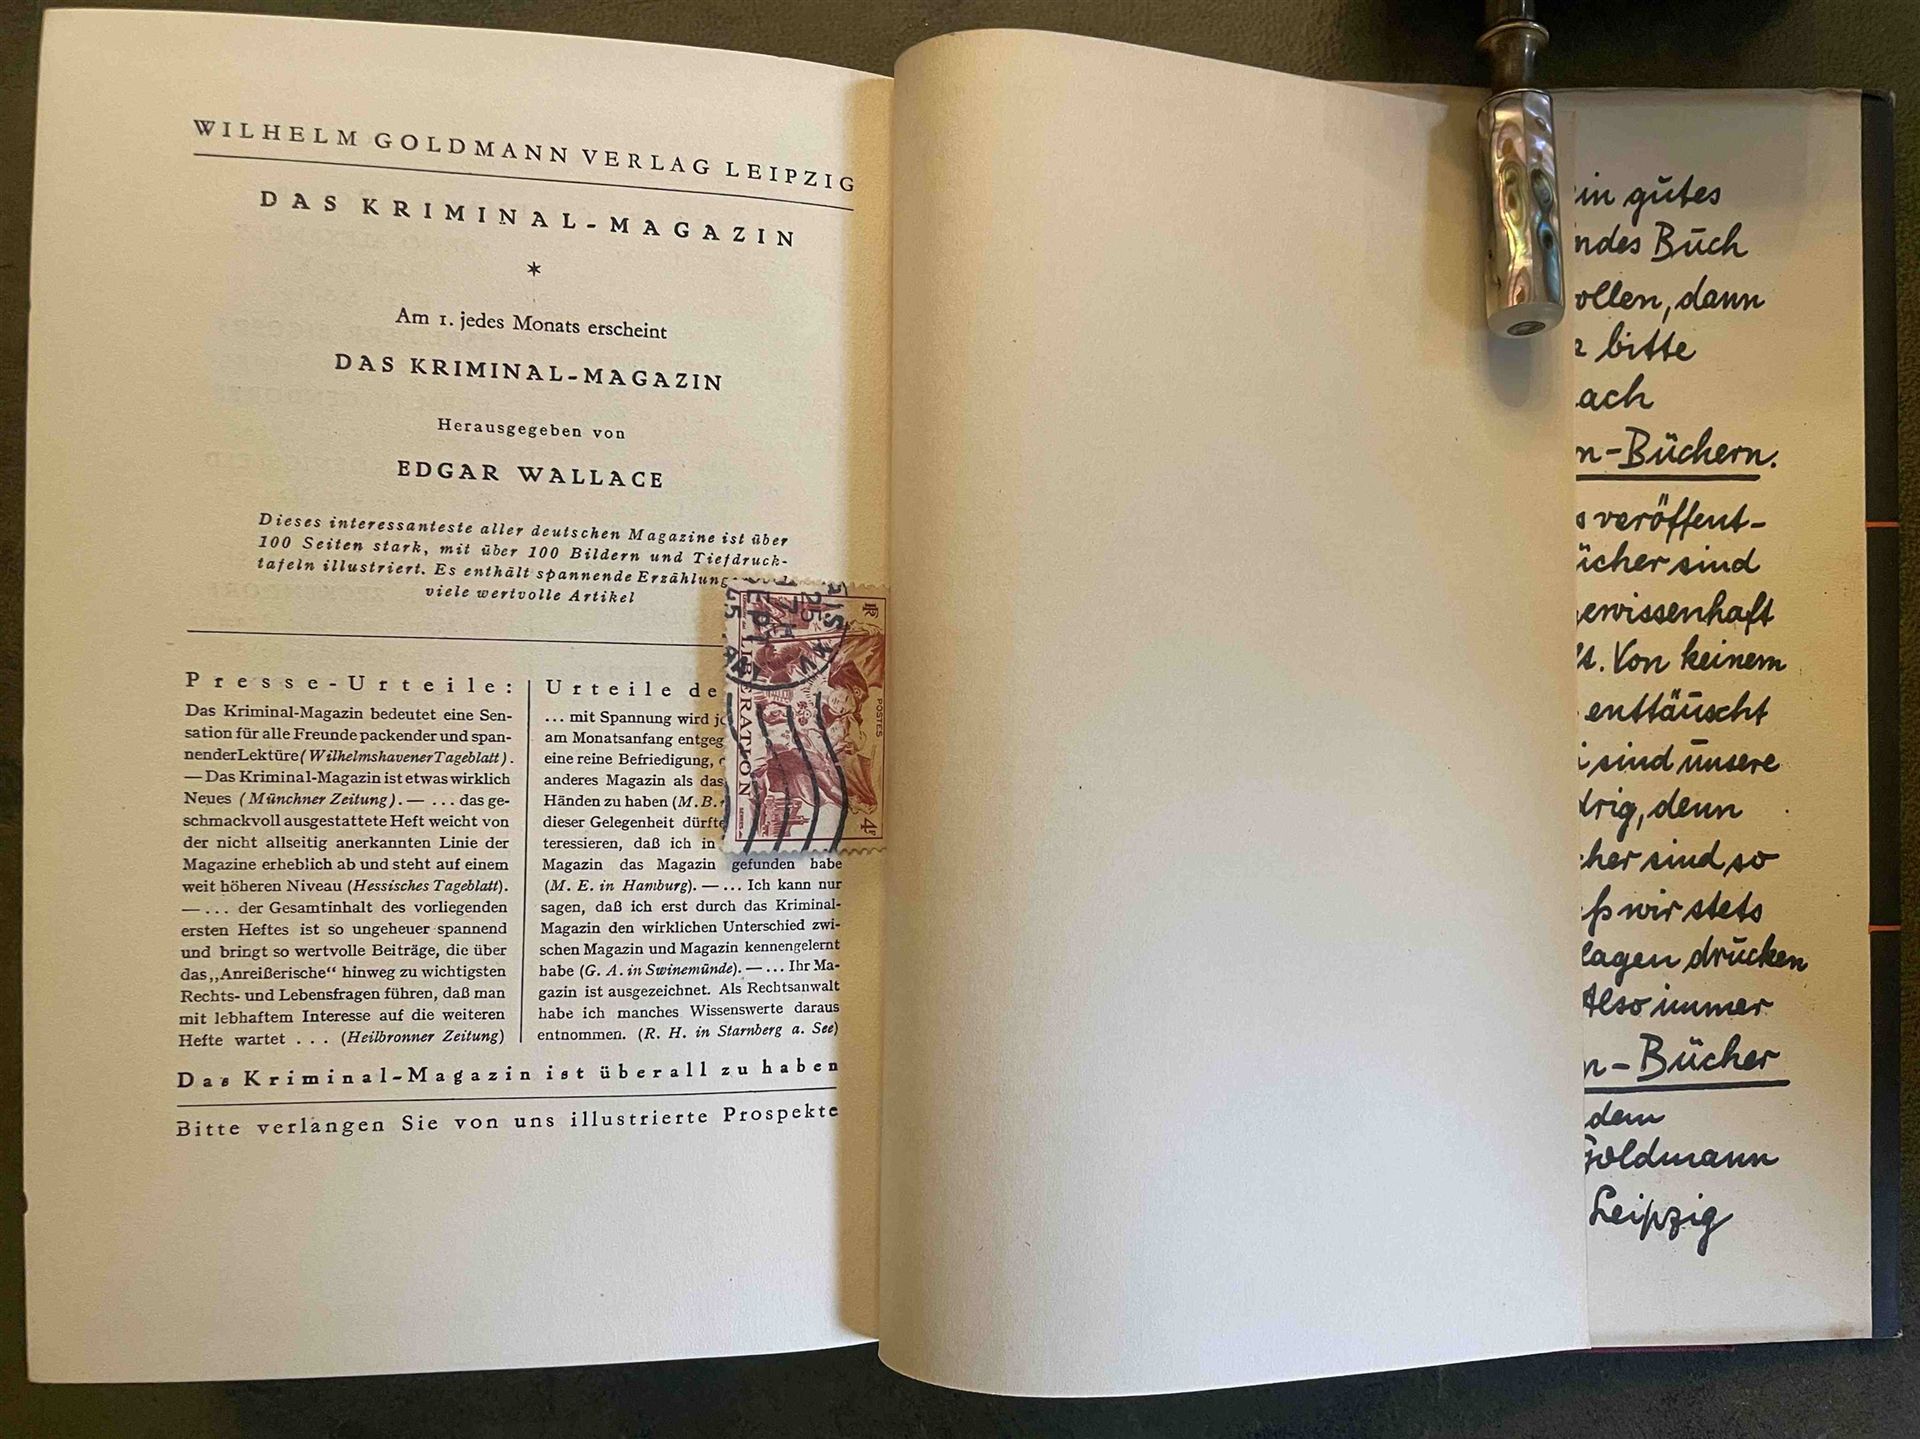 WILHELM GOLDMANN VERLAG LEIPZIG
DAS KRIMINAL-MAGAZIN
*
Am 1. jedes Monats erscheint
DAS KRIMINAL-MAGAZIN
Herausgegeben von
EDGAR WALLACE
Dieses interessanteste aller deutschen Magazine ist über
100 Seiten stark, mit über 100 Bildern und Tiefdruck-
tafeln illustriert. Es enthält spannende Erzählung
viele wertvolle Artikel
Presse-Urteile:
Das Kriminal-Magazin bedeutet eine Sen-
sation für alle Freunde packender und span-
nender Lektüre (Wilhelmshavener Tageblatt).
— Das Kriminal-Magazin ist etwas wirklich
Neues (Münchner Zeitung). — ... das ge-
schmackvoll ausgestattete Heft weicht von
der nicht allseitig anerkannten Linie der
Magazine erheblich ab und steht auf einem
weit höheren Niveau (Hessisches Tageblatt).
— ... der Gesamtinhalt des vorliegenden
ersten Heftes ist so ungeheuer spannend
und bringt so wertvolle Beiträge, die über
das „Anreißerische“ hinweg zu wichtigsten
Rechts- und Lebensfragen führen, daß man
mit lebhaftem Interesse auf die weiteren
Hefte wartet ... (Heilbronner Zeitung)
Urteile de
... mit Spannung wird j
am Monatsanfang entgeg
eine reine Befriedigung,
anderes Magazin als das
Händen zu haben (M.B.
dieser Gelegenheit dürfte
teressieren, daß ich in
Magazin das Magazin gefunden habe
(M. E. in Hamburg). — ... Ich kann nur
sagen, daß ich erst durch das Kriminal-
Magazin den wirklichen Unterschied zwi-
schen Magazin und Magazin kennengelernt
habe (G. A. in Swinemünde). — ... Ihr Ma-
gazin ist ausgezeichnet. Als Rechtsanwalt
habe ich manches Wissenswerte daraus
entnommen. (R. H. in Starnberg a. See)
Das Kriminal-Magazin ist überall zu haben
Bitte verlangen Sie von uns illustrierte Prospekte
RF
POSTES
4F
LIBERATION
in gutes
ndes Buch
ollen, dann
bitte
ach
n-Büchern.
s veröffent-
ücher sind
gewissenhaft
lt. Von keinem
enttäuscht
i sind unsere
drig, denn
cher sind so
ß wir stets
lagen drucken
Also immer
n-Bücher
dem
Goldmann
Leipzig